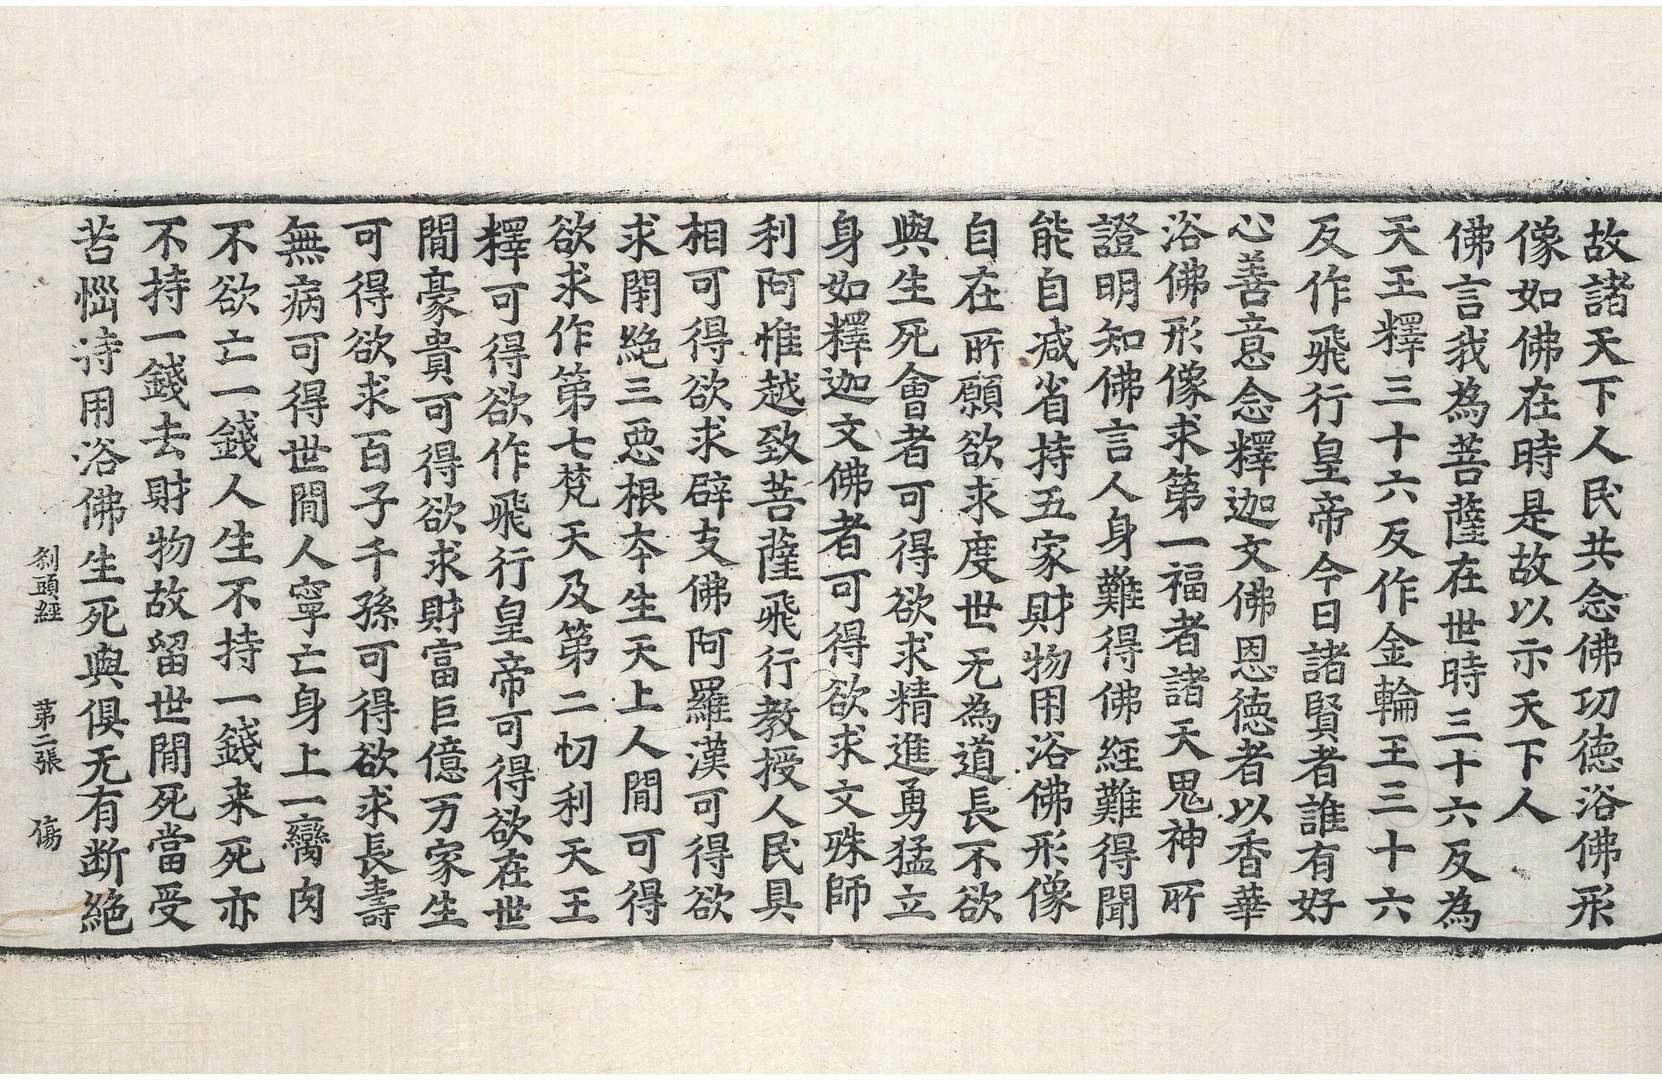 故諸天下人民共念佛功德浴佛形
像如佛在時是故以示天下人
佛言我為菩薩在世時三十六反為
天王釋三十六反作金輪王三十六
反作飛行皇帝今日諸賢者誰有好
心善意念釋迦文佛恩德者以香華
浴佛形像求第一福者諸天鬼神所
證明知佛言人身難得佛經難得聞
能自減省持五家財物用浴佛形像
自在所願欲求度世无為道長不欲
與生死會者可得欲求精進勇猛立
身如釋迦文佛者可得欲求文殊師
利阿惟越致菩薩飛行教授人民具
相可得欲求辟支佛阿羅漢可得欲
求閉絕三惡根本生天上人間可得
欲求作第七梵天及第二忉利天王
釋可得欲作飛行皇帝可得欲在世
間豪貴可得欲求財富巨億万家生
可得欲求百子千孫可得欲求長壽
無病可得世間人寧亡身上一臠肉
不欲亡一錢人生不持一錢来死亦
不持一錢去財物故留世間死當受
苦惱持用浴佛生死與俱无有断絕
剎頭經 第二張 傷